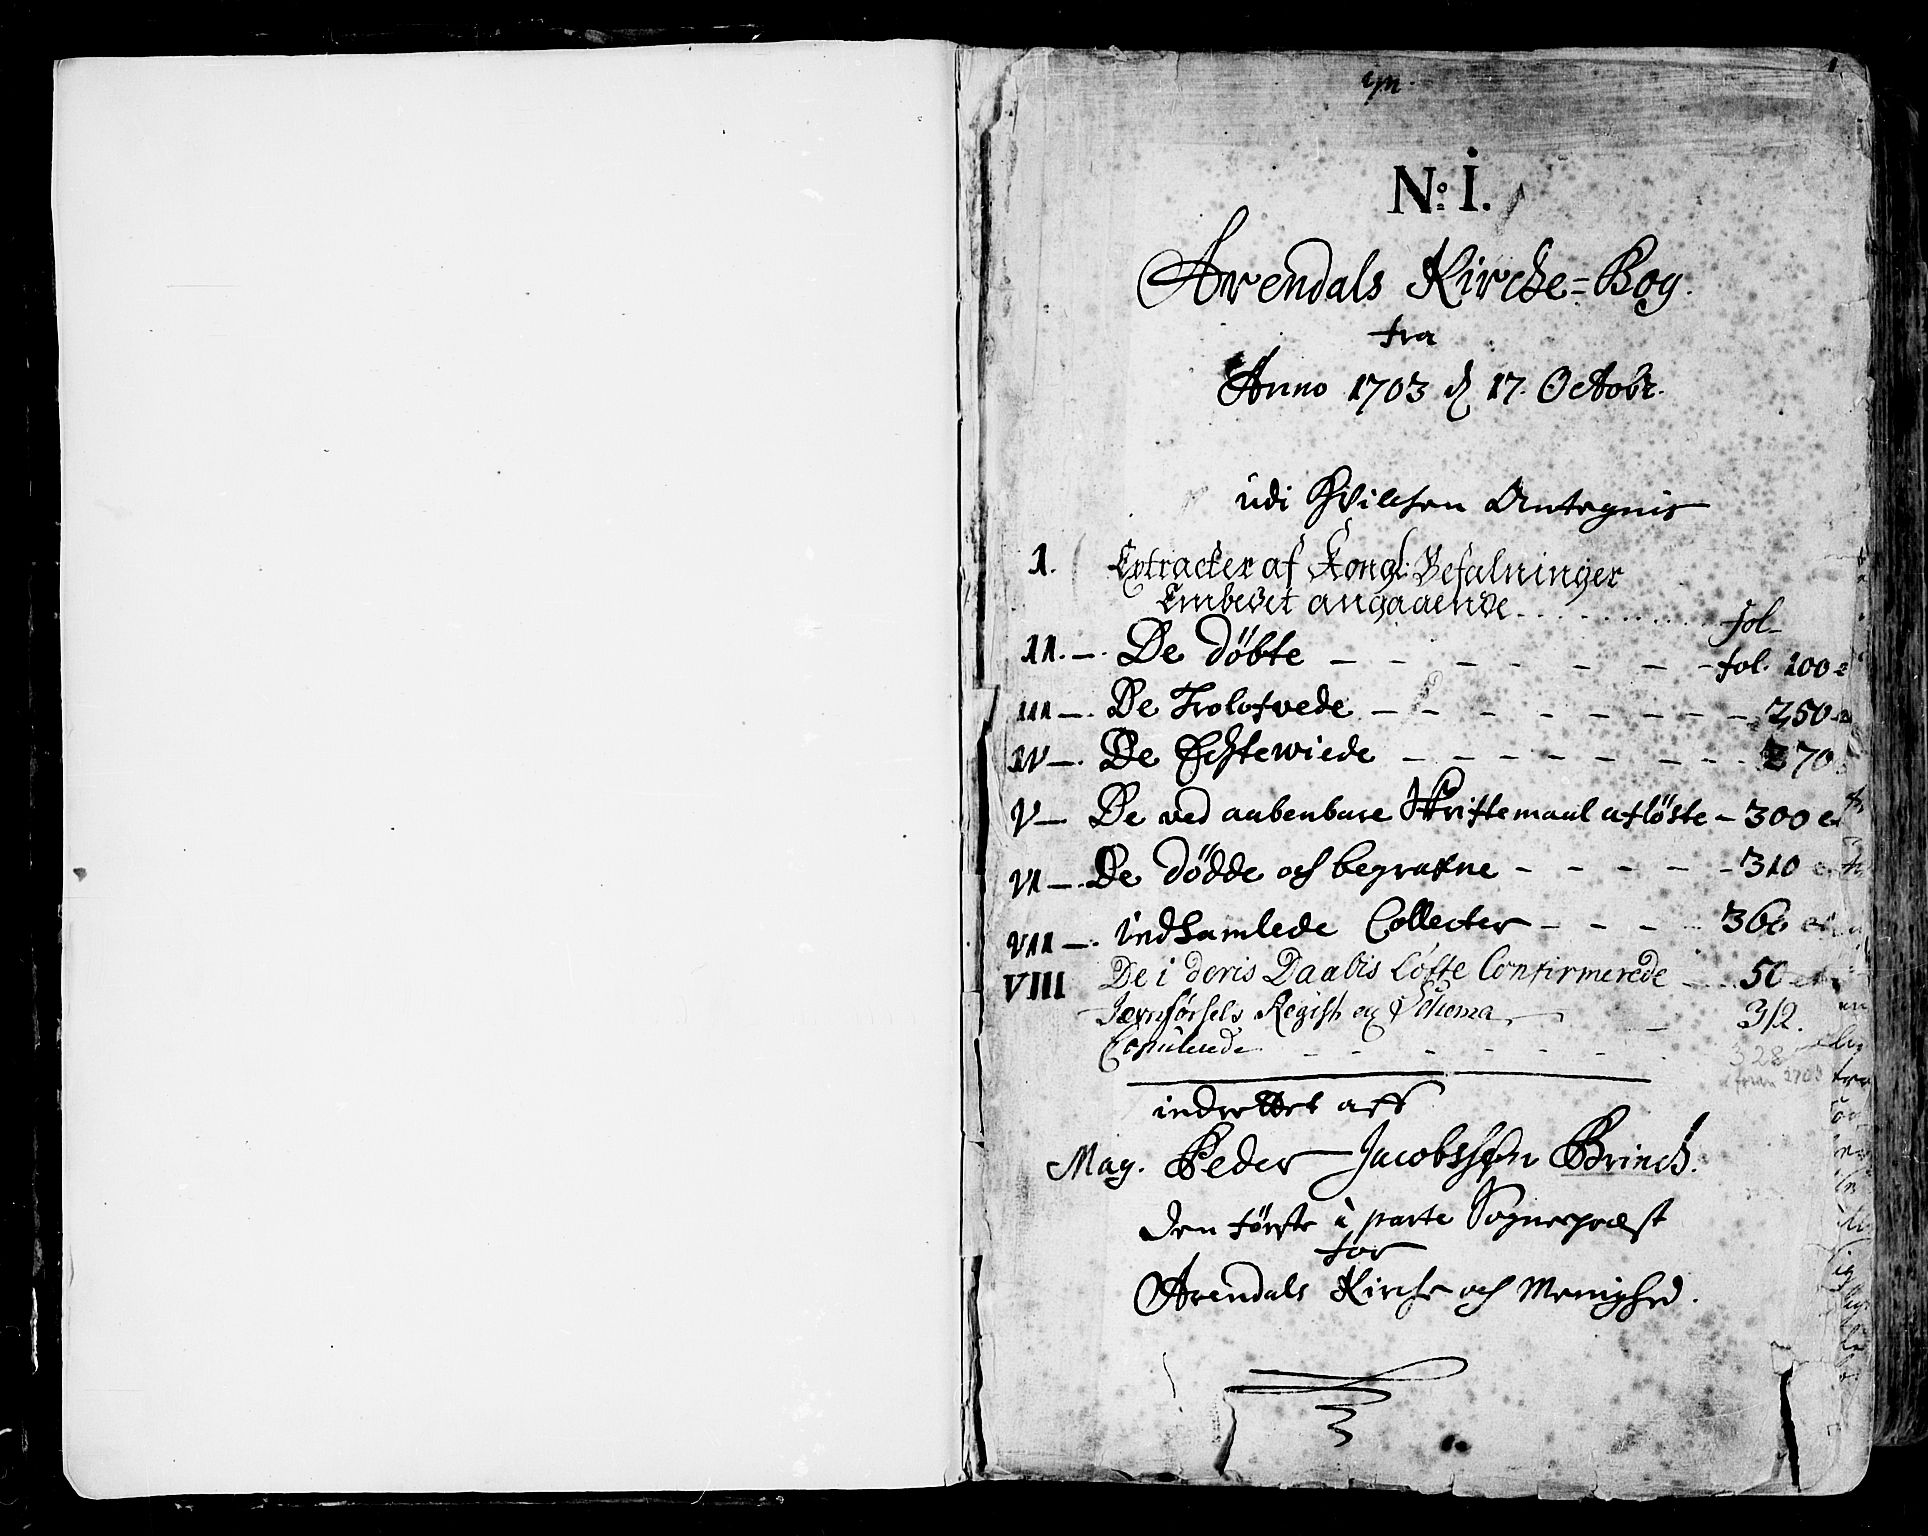 N:o 1.
Arendals Kirche=Bog.
fra
Anno 1703 d 17. Octobr.
udi Hvilchen Antegnis
1. Extracter af Kongl: Befalninger
Embedet angaaende. fol.
II. De døbte fol. 100
III. De Trolofvede 250
IV. De Echtewiede 270
V De ved aabenbare Skriftemaal afløste 300
VI. De dødde och begrafne 310
VII. indsamlede Collecter 360
VIII De i deris Daabis Løfte Confirmerede 50
Jævnførsels Regist. og Schema 312.
Copulerede 328
indrettet aff
Mag. Peder Jacobssøn Brinch.
den første i parte Sognepræst
for
Arendals Kirche och Menighed.